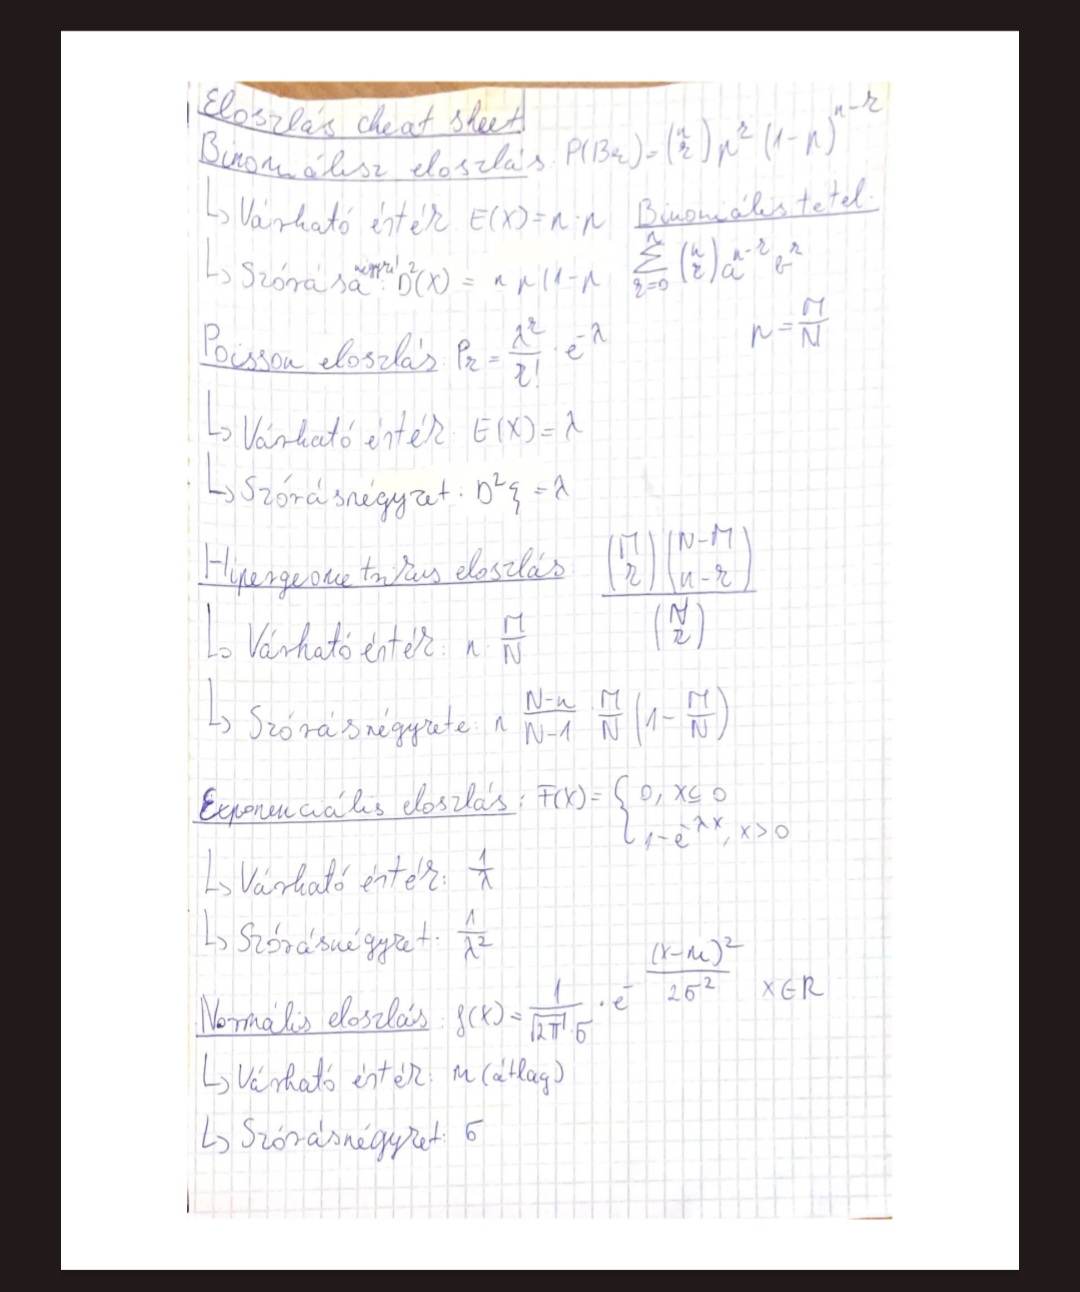 Eloszlás cheat sheet
Binomiálisz eloszlás: P(Bk) = (n k) p^k (1-p)^n-k
↳ Várható érték: E(X) = n·p
Binomiális tétel:
↳ Szórása négyz: D²(X) = n p (1-p
∑ k=0 n (n k) a^n-k b^k
p = M/N
Poisson eloszlás: Pk = λ^k/k! · e^-λ
↳ Várható érték: E(X) = λ
↳ Szórásnégyzet: D²ξ = λ
Hipergeometrikus eloszlás (M k)(N-M n-k)/(N k)
↳ Várható érték: n · M/N
↳ Szórásnégyzete: n N-n/N-1 · M/N (1 - M/N)
Exponenciális eloszlás: F(X) = { 0, x ≤ 0
1-e^-λx, x > 0
↳ Várható érték: 1/λ
↳ Szórásnégyzet: 1/λ²
Normális eloszlás: f(x) = 1/√2π·σ · e^- (x-m)²/2σ² x∈R
↳ Várható érték: m (átlag)
↳ Szórásnégyzet: σ